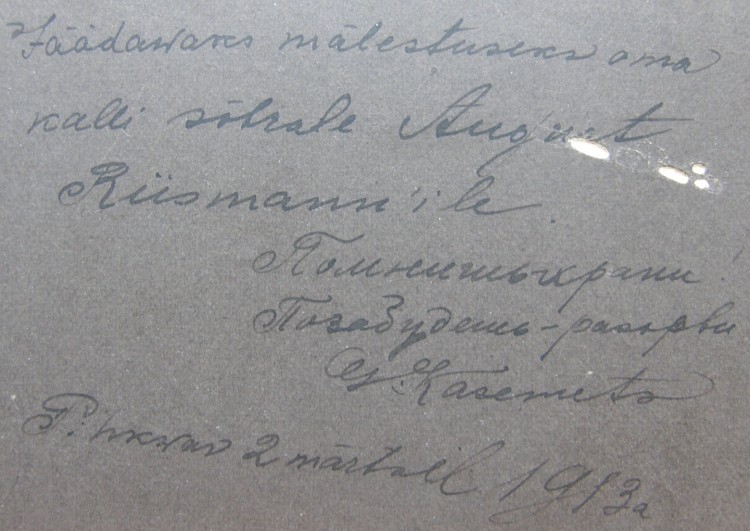 Jäädawaks mälestuseks oma
kalli sõbrale August
Riismann'ile.
Помнишь храни!
Позабудешь-разорви
G. Kasemets
Pihkwas 2 märtsil 1913a